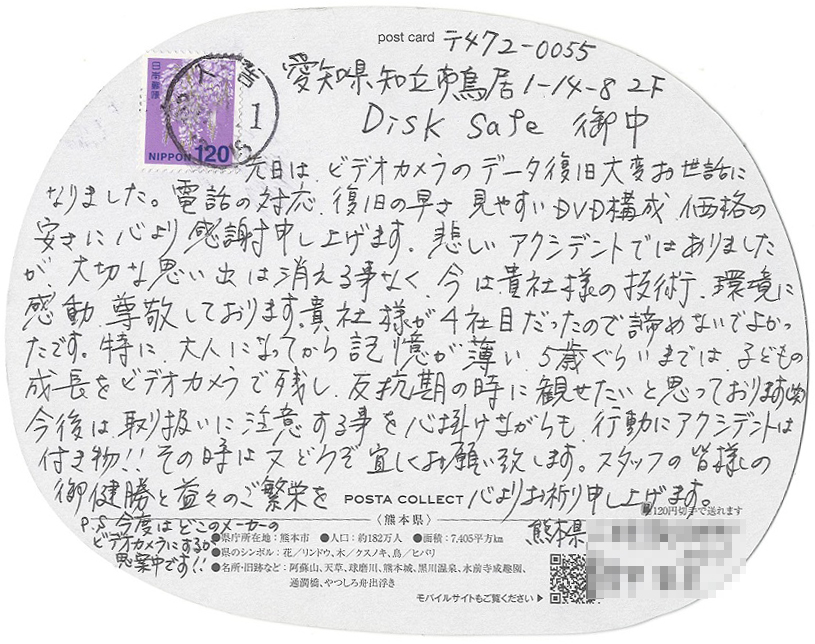 post card 〒472-0055
愛知県知立市鳥居1-14-8 2F
Disk Safe 御中
日本郵便
NIPPON 120
先日は、ビデオカメラのデータ復旧大変お世話に
なりました。電話の対応、復旧の早さ 見やすいDVD構成、価格の
安さに心より感謝申し上げます。悲しいアクシデントではありました
が、大切な思い出は消える事なく、今は貴社様の技術、環境に
感動、尊敬しております。貴社様が4社目だったので諦めないでよかっ
たです。特に、大人になってから記憶が薄い、5歳ぐらいまでは、子どもの
成長をビデオカメラで残し、反抗期の時に観せたいと思っております(笑)
今後は、取り扱いに注意する事を心掛けながらも、行動にアクシデントは
付き物!! その時は又どうぞ宜しくお願い致します。スタッフの皆様の
御健勝と益々のご繁栄を POSTA COLLECT 心よりお祈り申し上げます。
120円切手で送れます
P.S 今度はどこのメーカーの
ビデオカメラにするか
思案中です!!
〈熊本県〉
●県庁所在地：熊本市 ●人口：約182万人 ●面積：7,405平方km
●県のシンボル：花／リンドウ、木／クスノキ、鳥／ヒバリ
●名所・旧跡など：阿蘇山、天草、球磨川、熊本城、黒川温泉、水前寺成趣園、
通潤橋、やつしろ舟出浮き
モバイルサイトもご覧ください▶
熊本県